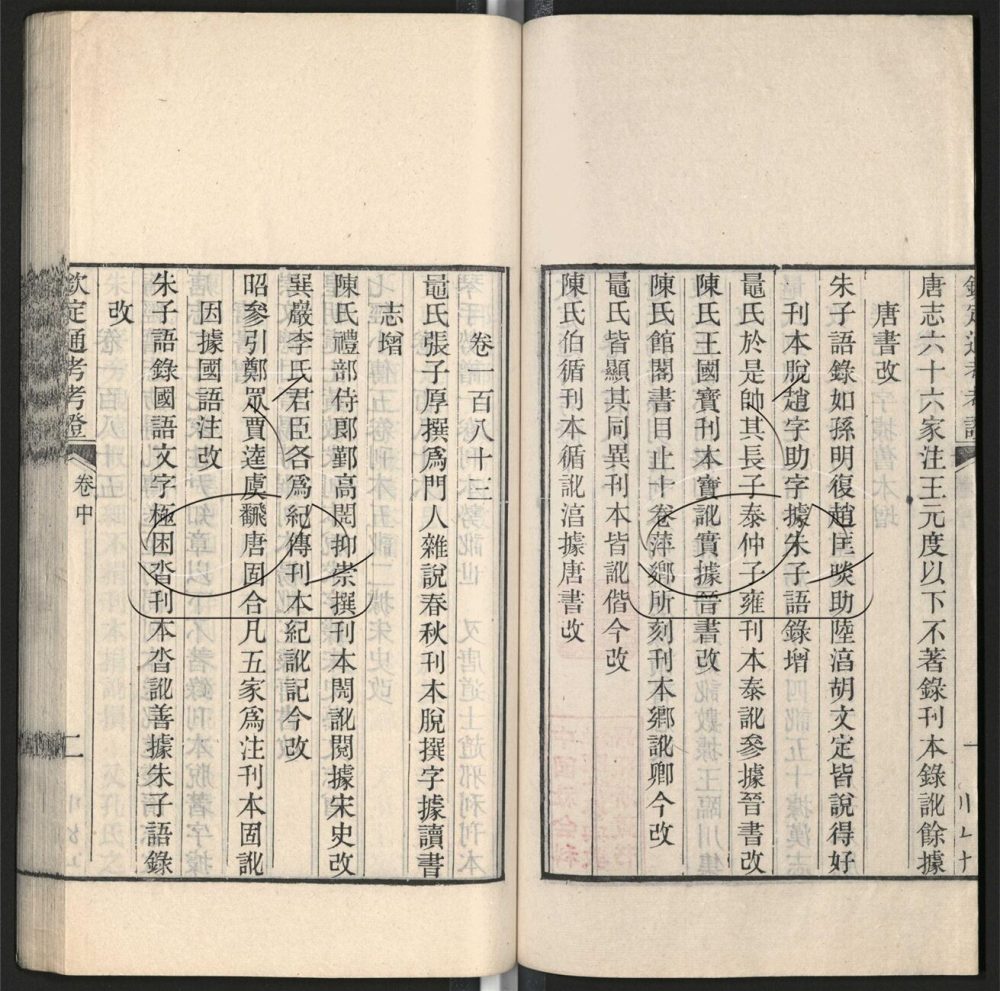 唐志六十六家注王元度以下不著錄刊本錄訛餘據
唐書改
朱子語錄如孫明復趙匡啖助陸淳胡文定皆說得好
刊本脫趙字助字據朱子語錄增
鼂氏於是帥其長子泰仲子雍刊本泰訛參據晉書改
陳氏王國寶刊本寶訛實據晉書改
陳氏館閣書目止十卷萍鄉所刻刊本鄉訛卿今改
鼂氏皆顯其同異刊本皆訛偕今改
陳氏伯循刊本循訛湻據唐書改
卷一百八十三
鼂氏張子厚撰爲門人雜說春秋刊本脫撰字據讀書
志增
陳氏禮部侍郞鄞高閌抑崇撰刊本閌訛閱據宋史改
巽巖李氏君臣各爲紀傳刊本紀訛記今改
昭參引鄭眾賈逵虞飜唐固合凡五家爲注刊本固訛
因據國語注改
朱子語錄國語文字極困沓刊本沓訛善據朱子語錄
改
欽定通考考證
卷中
二